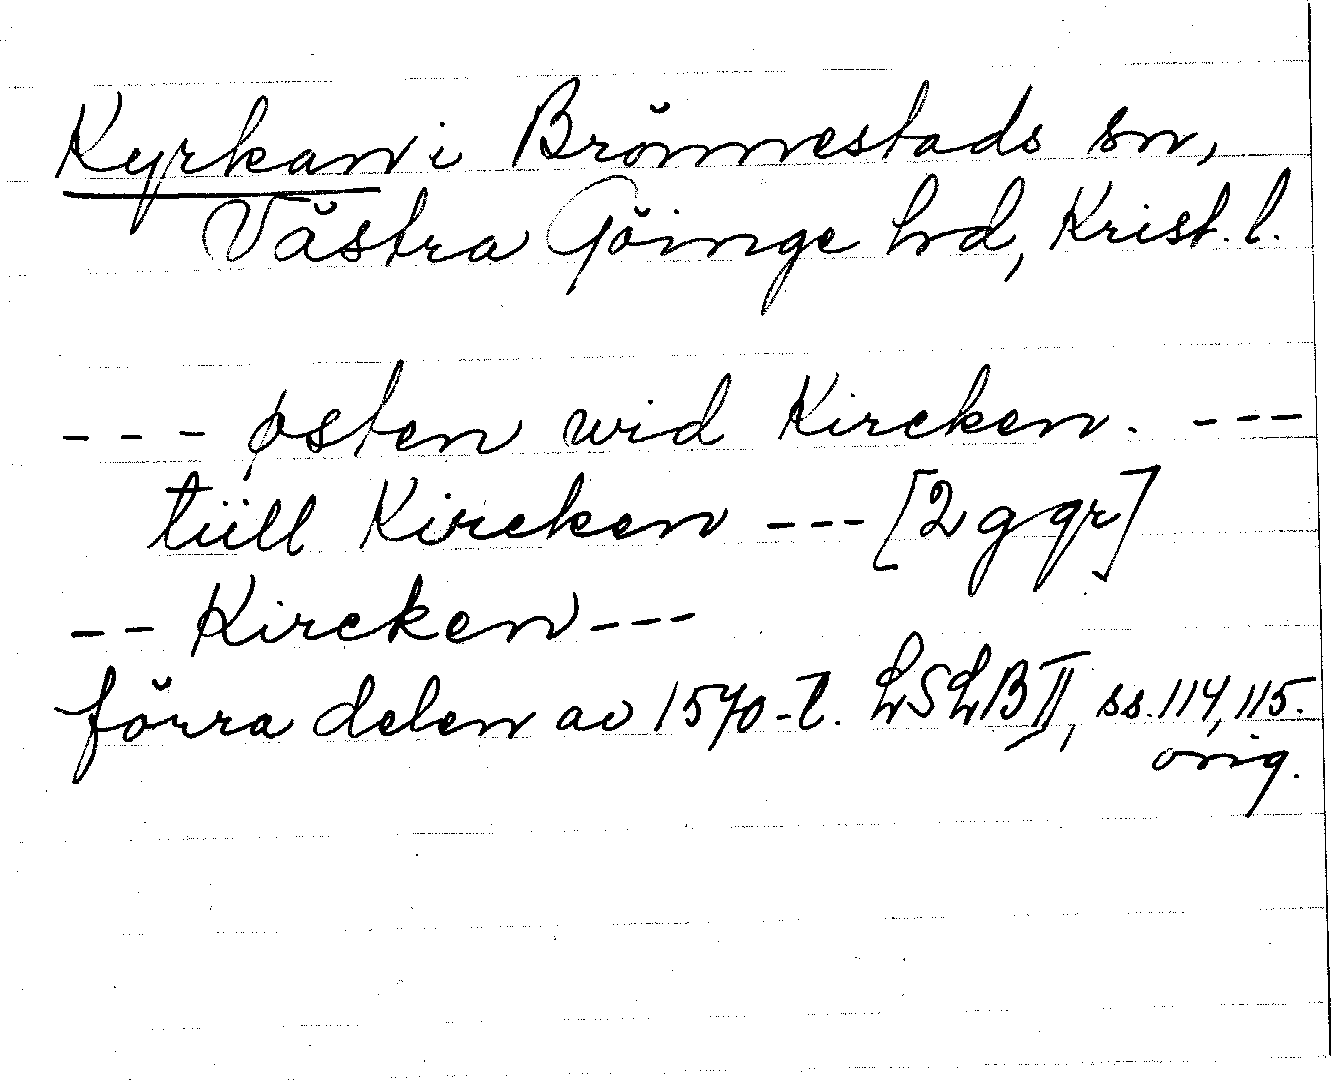 Kyrkan i Brönnestads sn,
Västra Göinge hd, Krist. l.
--- østen wid Kircken. ---
tüll Kircken --- [2 ggr]
-- Kircken ---
förra delen av 1570-t. LSLB II, ss. 114, 115.
orig.